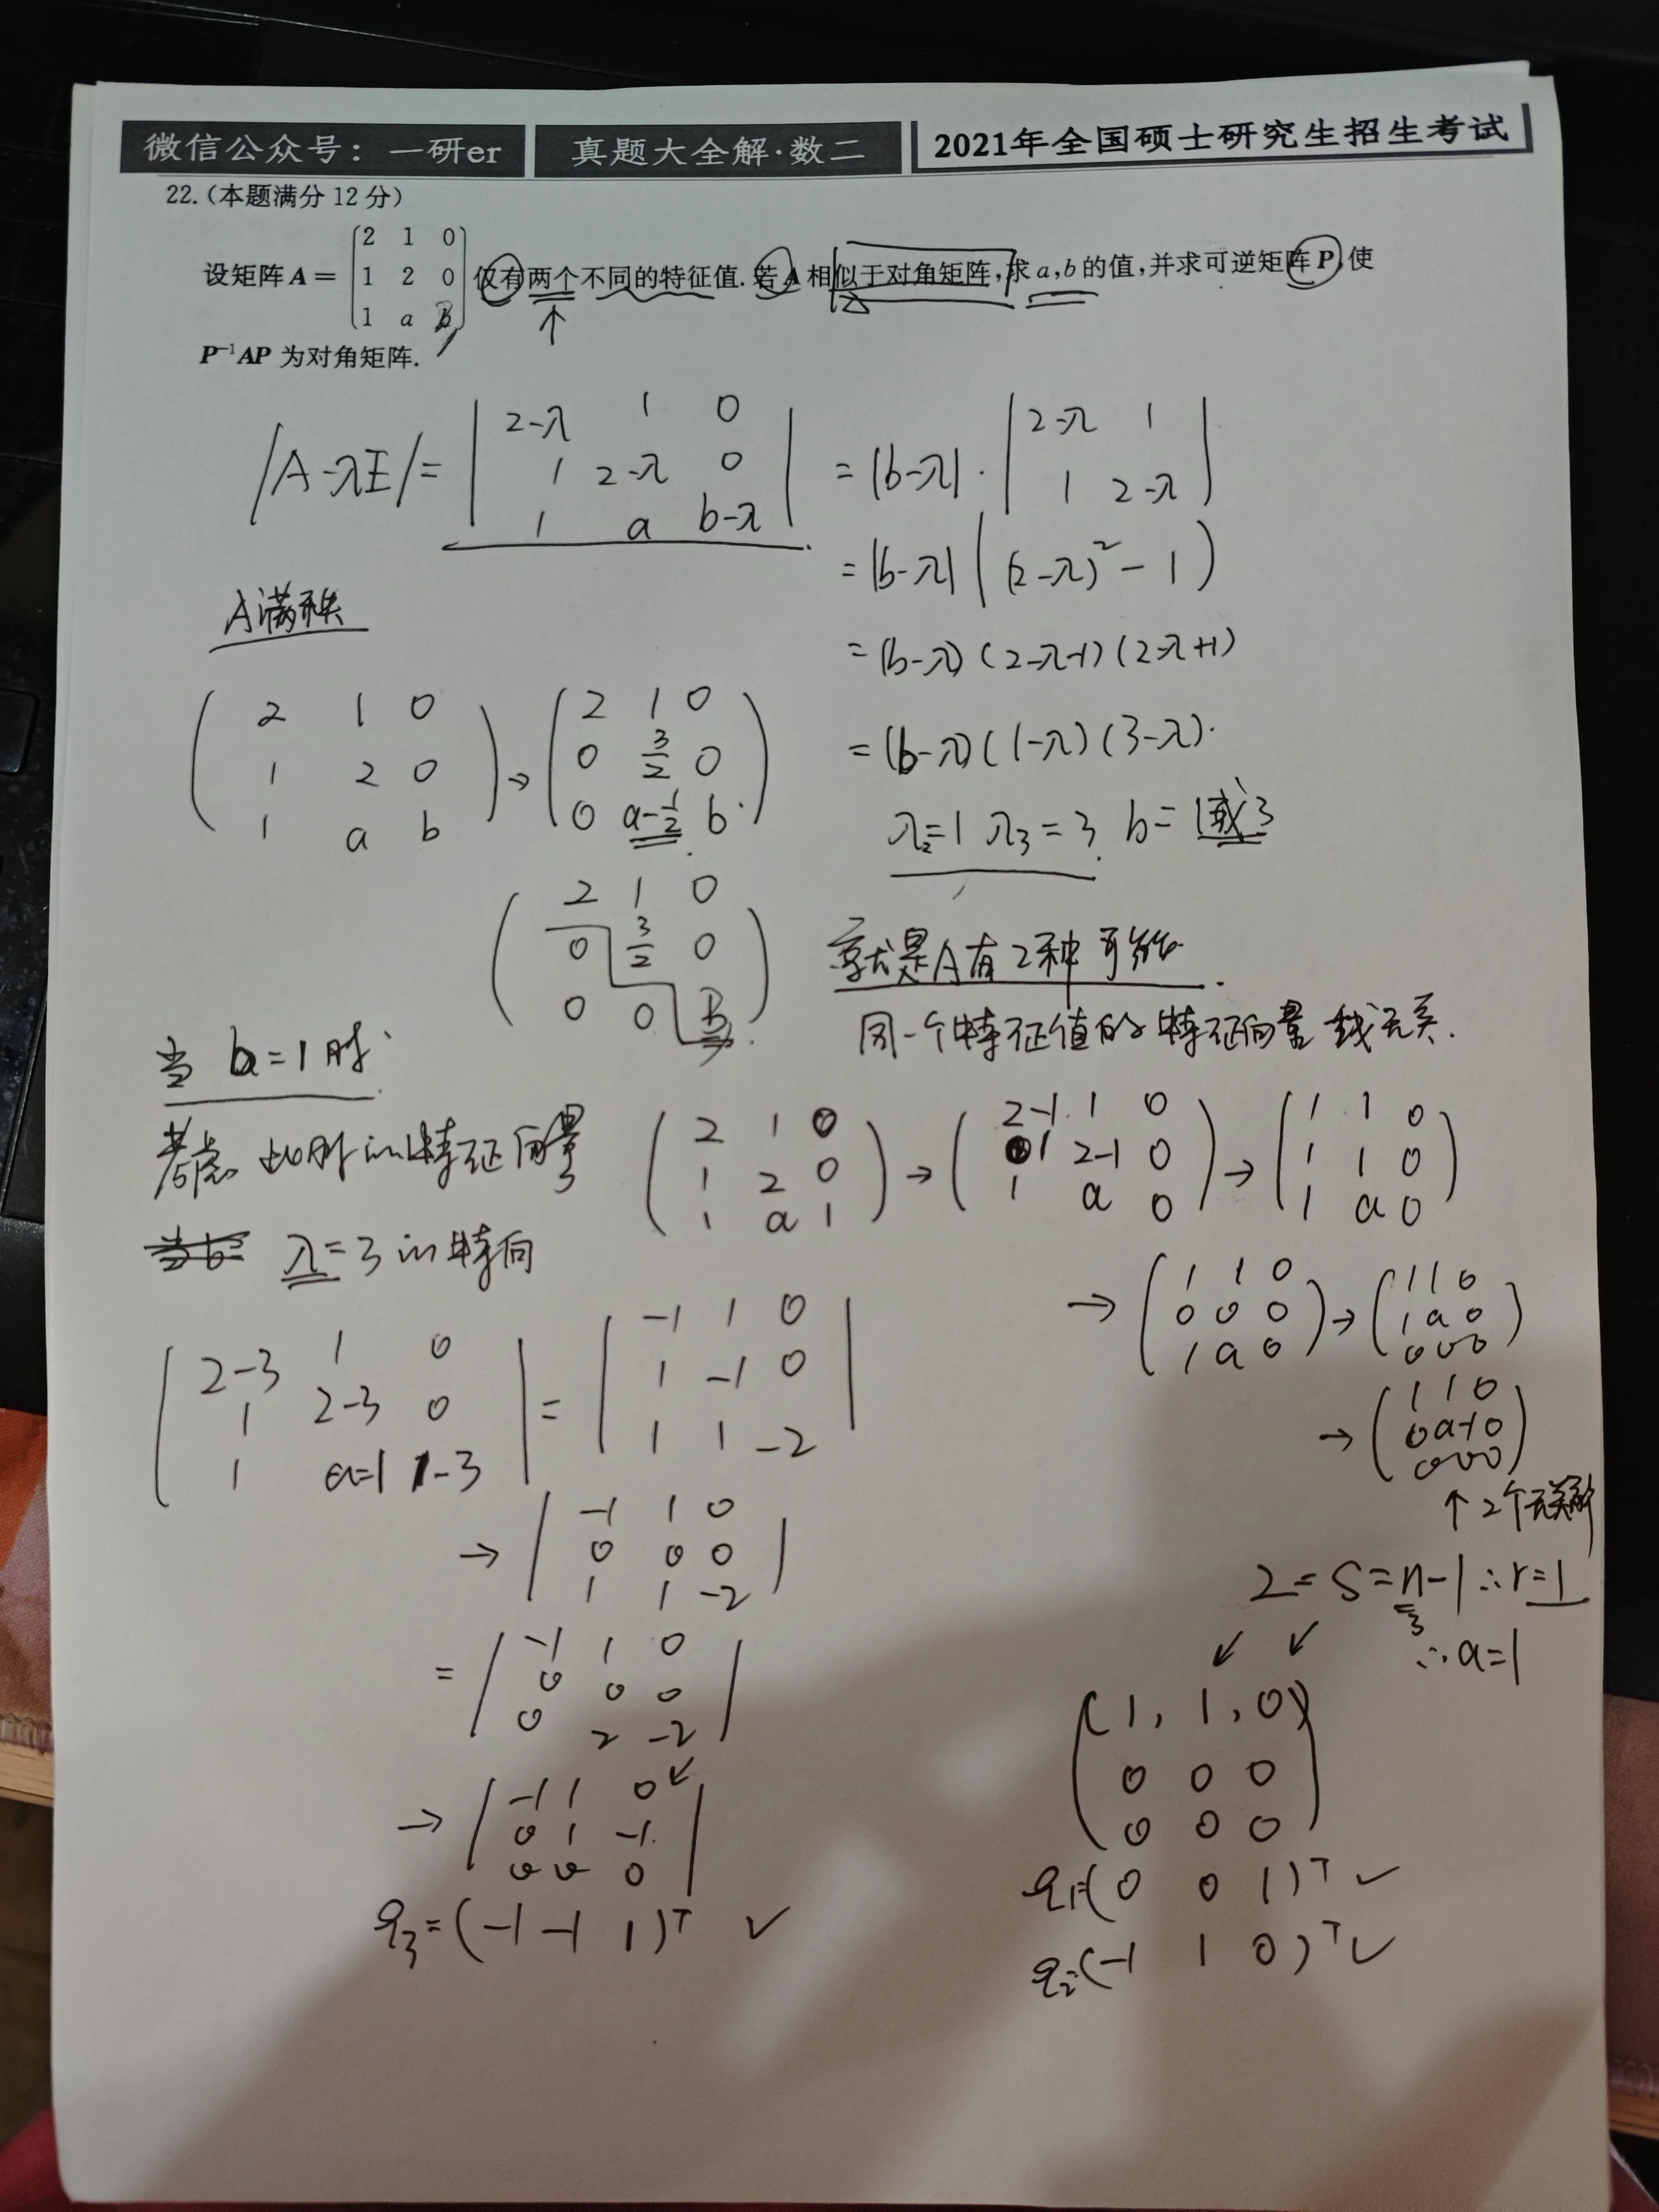 微信公众号：一研er 真题大全解·数二 2021年全国硕士研究生招生考试
22.(本题满分 12 分)
2 1 0
设矩阵 A = 1 2 0 仅有两个不同的特征值. 若 A 相似于对角矩阵, 求 a,b 的值, 并求可逆矩阵 P, 使
1 a b
P⁻¹AP 为对角矩阵.
2-λ 1 0
|A-λE|= 1 2-λ 0
1 a b-λ
2-λ 1
= |b-λ|·
1 2-λ
= |b-λ| ((2-λ)²-1)
= (b-λ)(2-λ-1)(2-λ+1)
= (b-λ)(1-λ)(3-λ).
λ₂=1 λ₃=3. b=1或3
A满秩
2 1 0
1 2 0
1 a b
→
2 1 0
0 3/2 0
0 a-1/2 b
2 1 0
0 3/2 0
0 0 B
就是A有2种可能.
同一个特征值的特征向量线无关.
当 b=1时
考虑此时的特征向量
2 1 0
1 2 0
1 a 1
→
2-1 1 0
1 2-1 0
1 a 0
→
1 1 0
1 1 0
1 a 0
→
1 1 0
0 0 0
1 a 0
→
1 1 0
1 a 0
0 0 0
→
1 1 0
0 a-1 0
0 0 0
↑2个无关解
2=S=n-1 ∴r=1
3
∴a=1
1, 1, 0
0 0 0
0 0 0
q₁=(0 0 1)ᵀ ✓
q₂=(-1 1 0)ᵀ ✓
λ=3的特向
2-3 1 0
1 2-3 0
1 a=1 1-3
=
-1 1 0
1 -1 0
1 1 -2
→
-1 1 0
0 0 0
1 1 -2
=
-1 1 0
0 0 0
0 2 -2
→
-1 1 0
0 1 -1
0 0 0
q₃=(-1 -1 1)ᵀ ✓